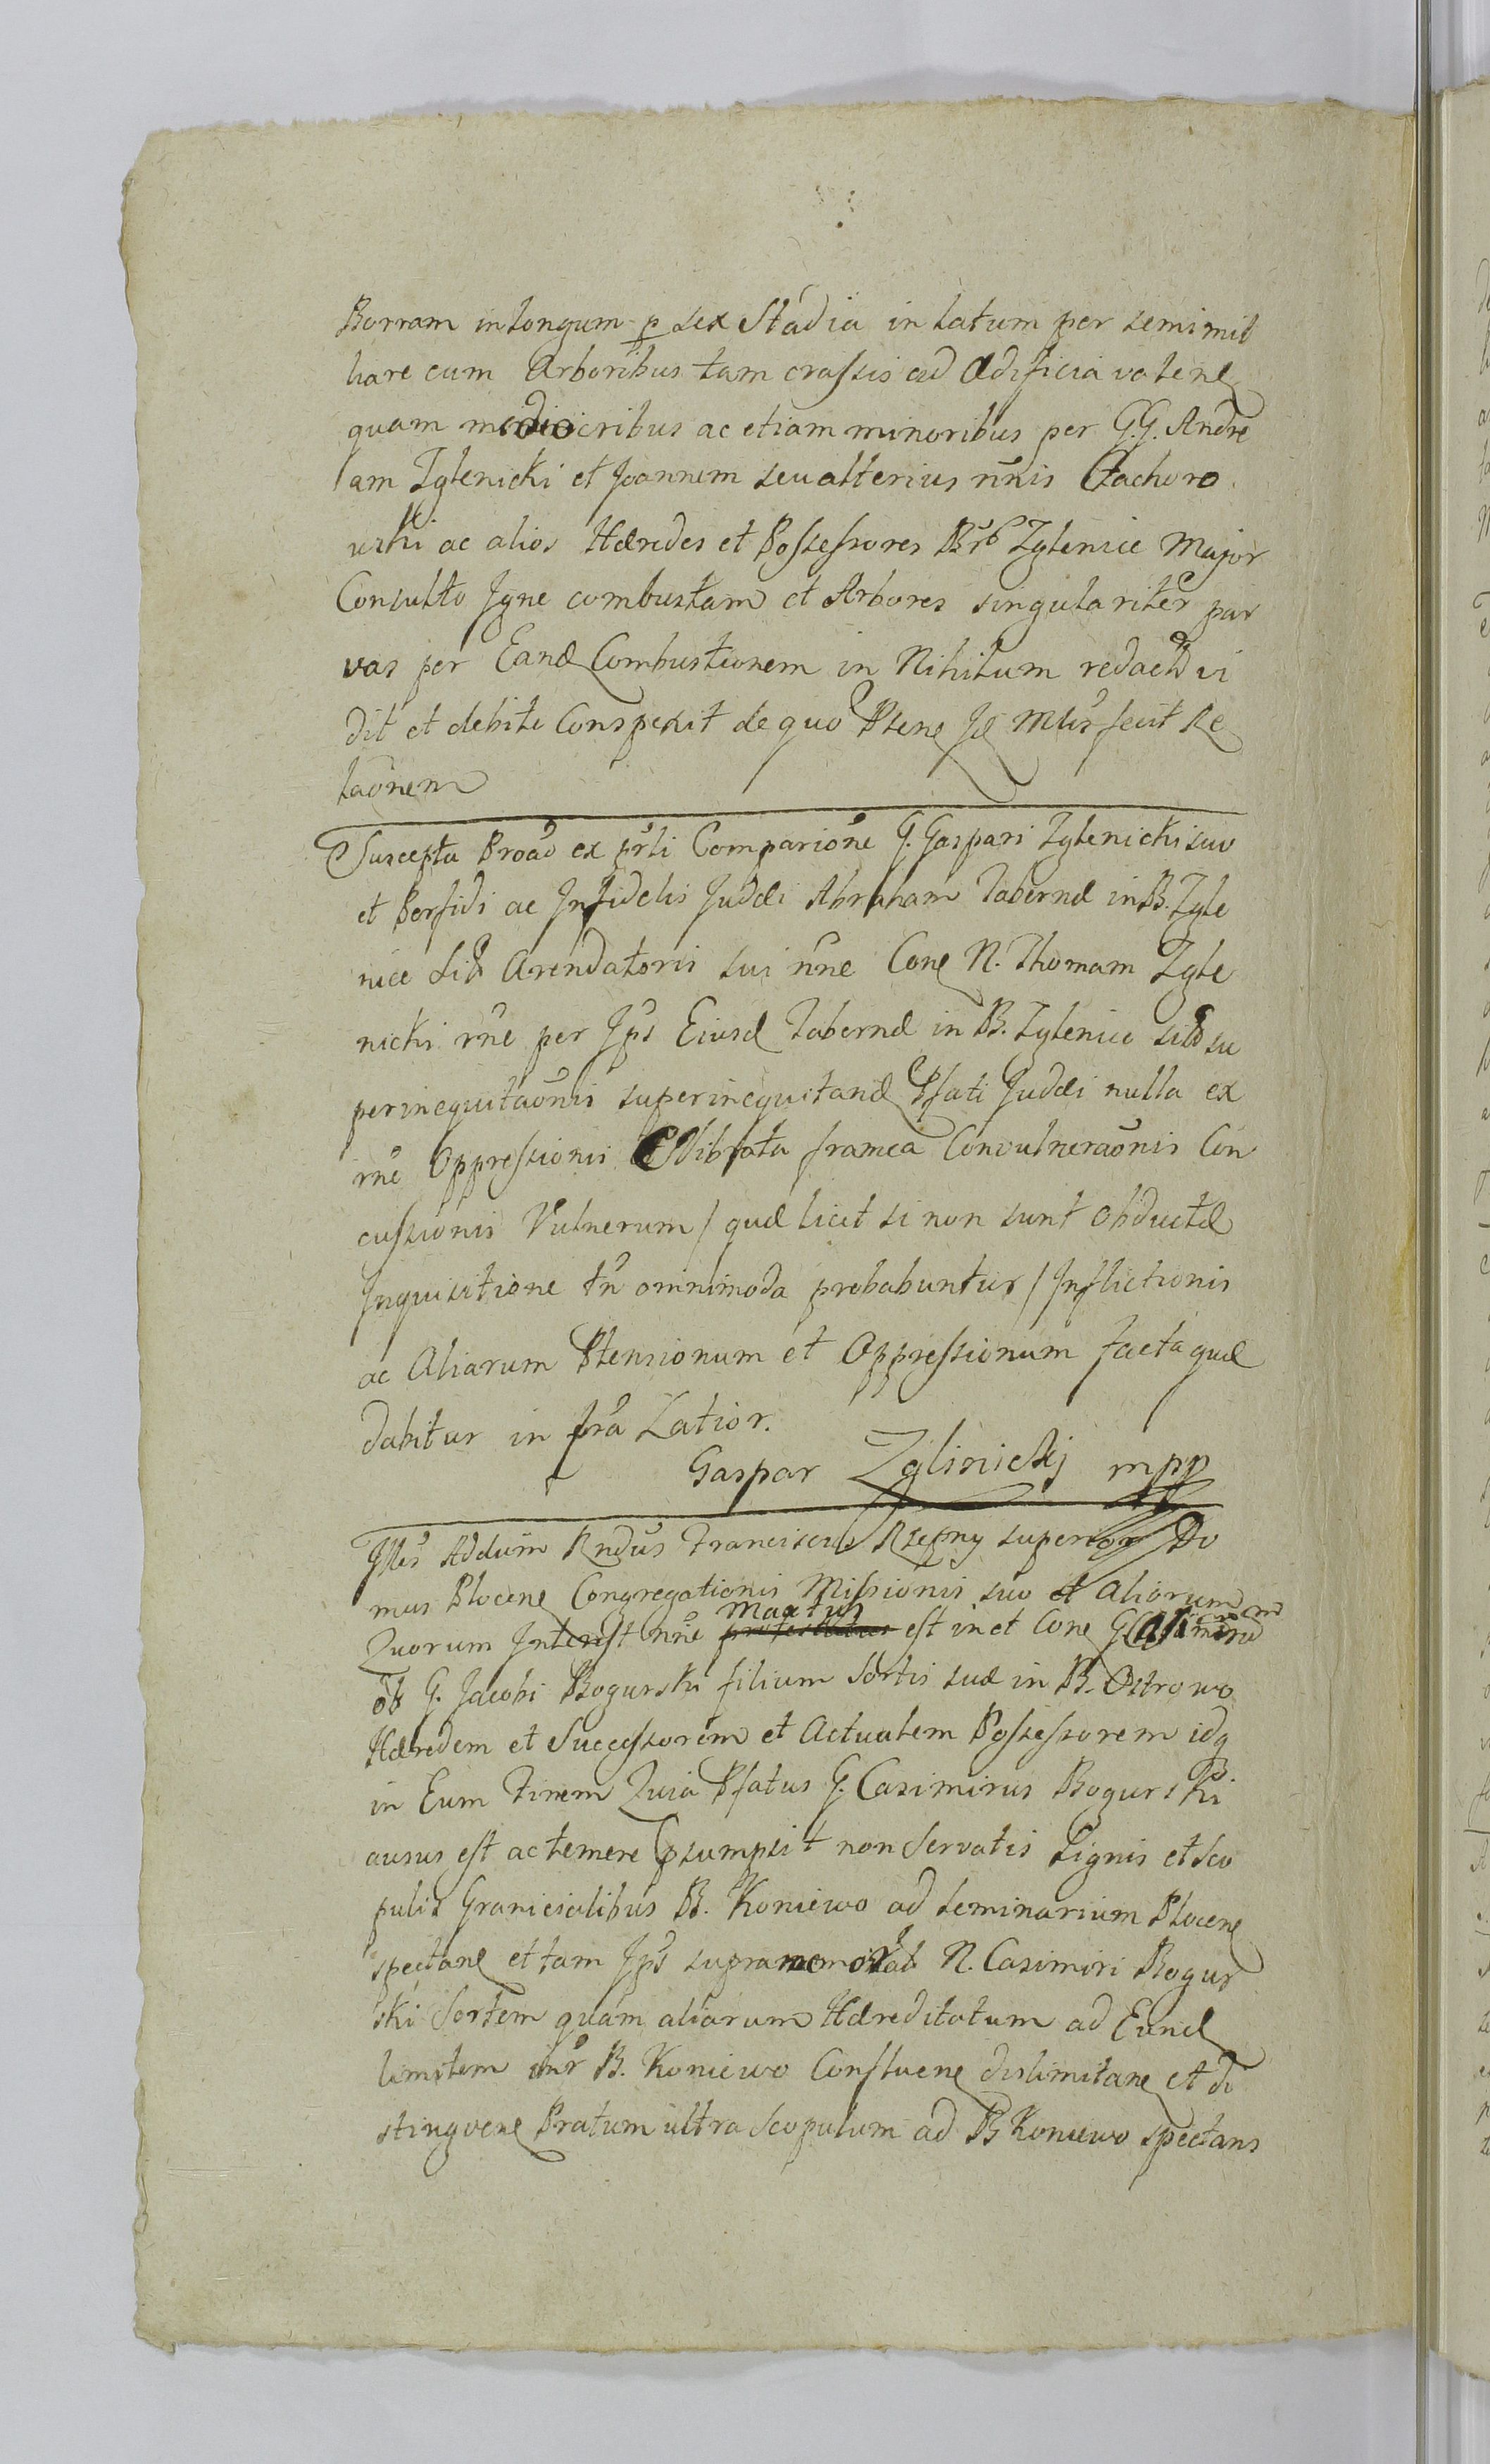 Borram in longum p sex Stadia in latum per semimil
liare cum Arboribus tam crassis ad Ædificia valene
quam mediocribus ac etiam minoribus per G.G. Andre
am Zglenicki et Joannem seu alterius nnis Czachoro
wski ac alios Hæredes et Possessores Zglenice Major
Consulto Jgne combustam et Arbores singulariter par
vas per Eand Combustionem in Nihilum redact vi
dit et debite Conspexit de quo Psene Jd Mlis fecit Re
laonem
Suscepta Proao ex prli Comparione G. Gaspari Zglenicki suo
et Perfidi ac Jnfidelis Judæi Abraham Tabernæ in B. Zgle
nice Arendatoris sui nne Cone N. Thomam Zgle
nicki rne per Jps Eiusd Tabernæ in B. Zglenice su
perinequitaonis superinequitand Pfati Judæi nulla ex
rne Oppressionis Evibrata framea Convulneraonis Con
cussionis Vulnerum / quæ licet si non sunt obductæ
Jnquisitione tn omnimoda probabuntur / Jnflictionis
ac Aliarum Ptensionum et Oppressionum facta quæ
dabitur in fra Latior.
Gaspar Zglinickj mpp
Jllris Addum Rndus Franciscus superior Do
mus Plocene Congregationis Missionis suo et Aliorum
Quorum Jnterest nne protestatus est in et Cone G Casimirum
olt G. Jacobi Bogurski filium Sortis suæ in B. Ostrowo
Hæredem et Successorem et Actualem Possessorem idq
in Eum Finem Quia Pfatus G. Casimirus Bogurski
ausus est ac temere psumpsit non Servatis Signis et Sco
pulis Granicialibus B. Koniewo ad Seminarium Plocene
spectane et tam Jps supramemorat N. Casimiri Bogur
ski Sortem quam aliarum Hæreditatum ad Eund
limitem intr B. Koniewo Confluene dislimitane et di
stingvene Pratum ultra Scopulum ad B Koniewo spectans